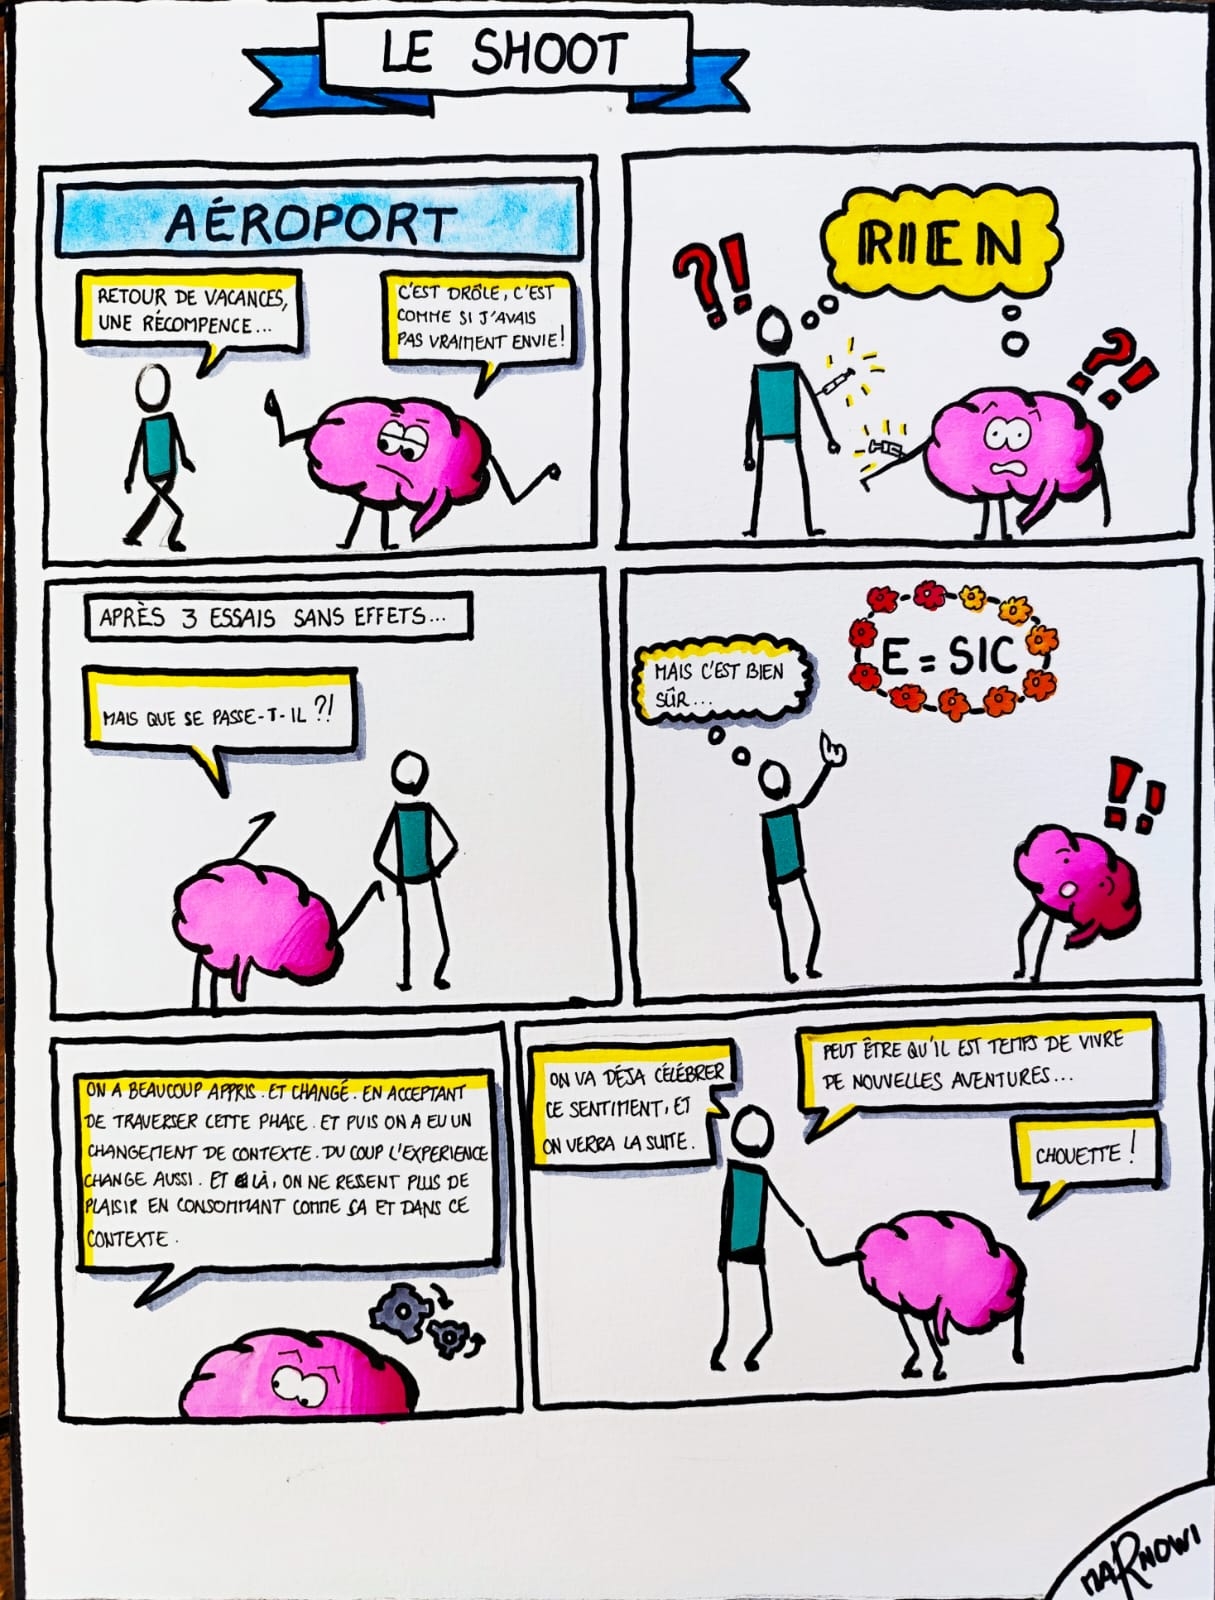 LE SHOOT
AÉROPORT
RETOUR DE VACANCES,
UNE RÉCOMPENCE...
C'EST DRÔLE, C'EST
COMME SI J'AVAIS
PAS VRAIMENT ENVIE!
?!
RIEN
?!
APRÈS 3 ESSAIS SANS EFFETS...
MAIS QUE SE PASSE-T-IL ?!
MAIS C'EST BIEN
SÛR...
E = SIC
!!
ON A BEAUCOUP APPRIS. ET CHANGÉ. EN ACCEPTANT
DE TRAVERSER CETTE PHASE. ET PUIS ON A EU UN
CHANGEMENT DE CONTEXTE. DU COUP L'EXPERIENCE
CHANGE AUSSI. ET LÀ, ON NE RESSENT PLUS DE
PLAISIR EN CONSOMMANT COMME ÇA ET DANS CE
CONTEXTE.
ON VA DÉJA CÉLÉBRER
CE SENTIMENT, ET
ON VERRA LA SUITE.
PEUT ÊTRE QU'IL EST TEMPS DE VIVRE
DE NOUVELLES AVENTURES...
CHOUETTE !
MARNOWI